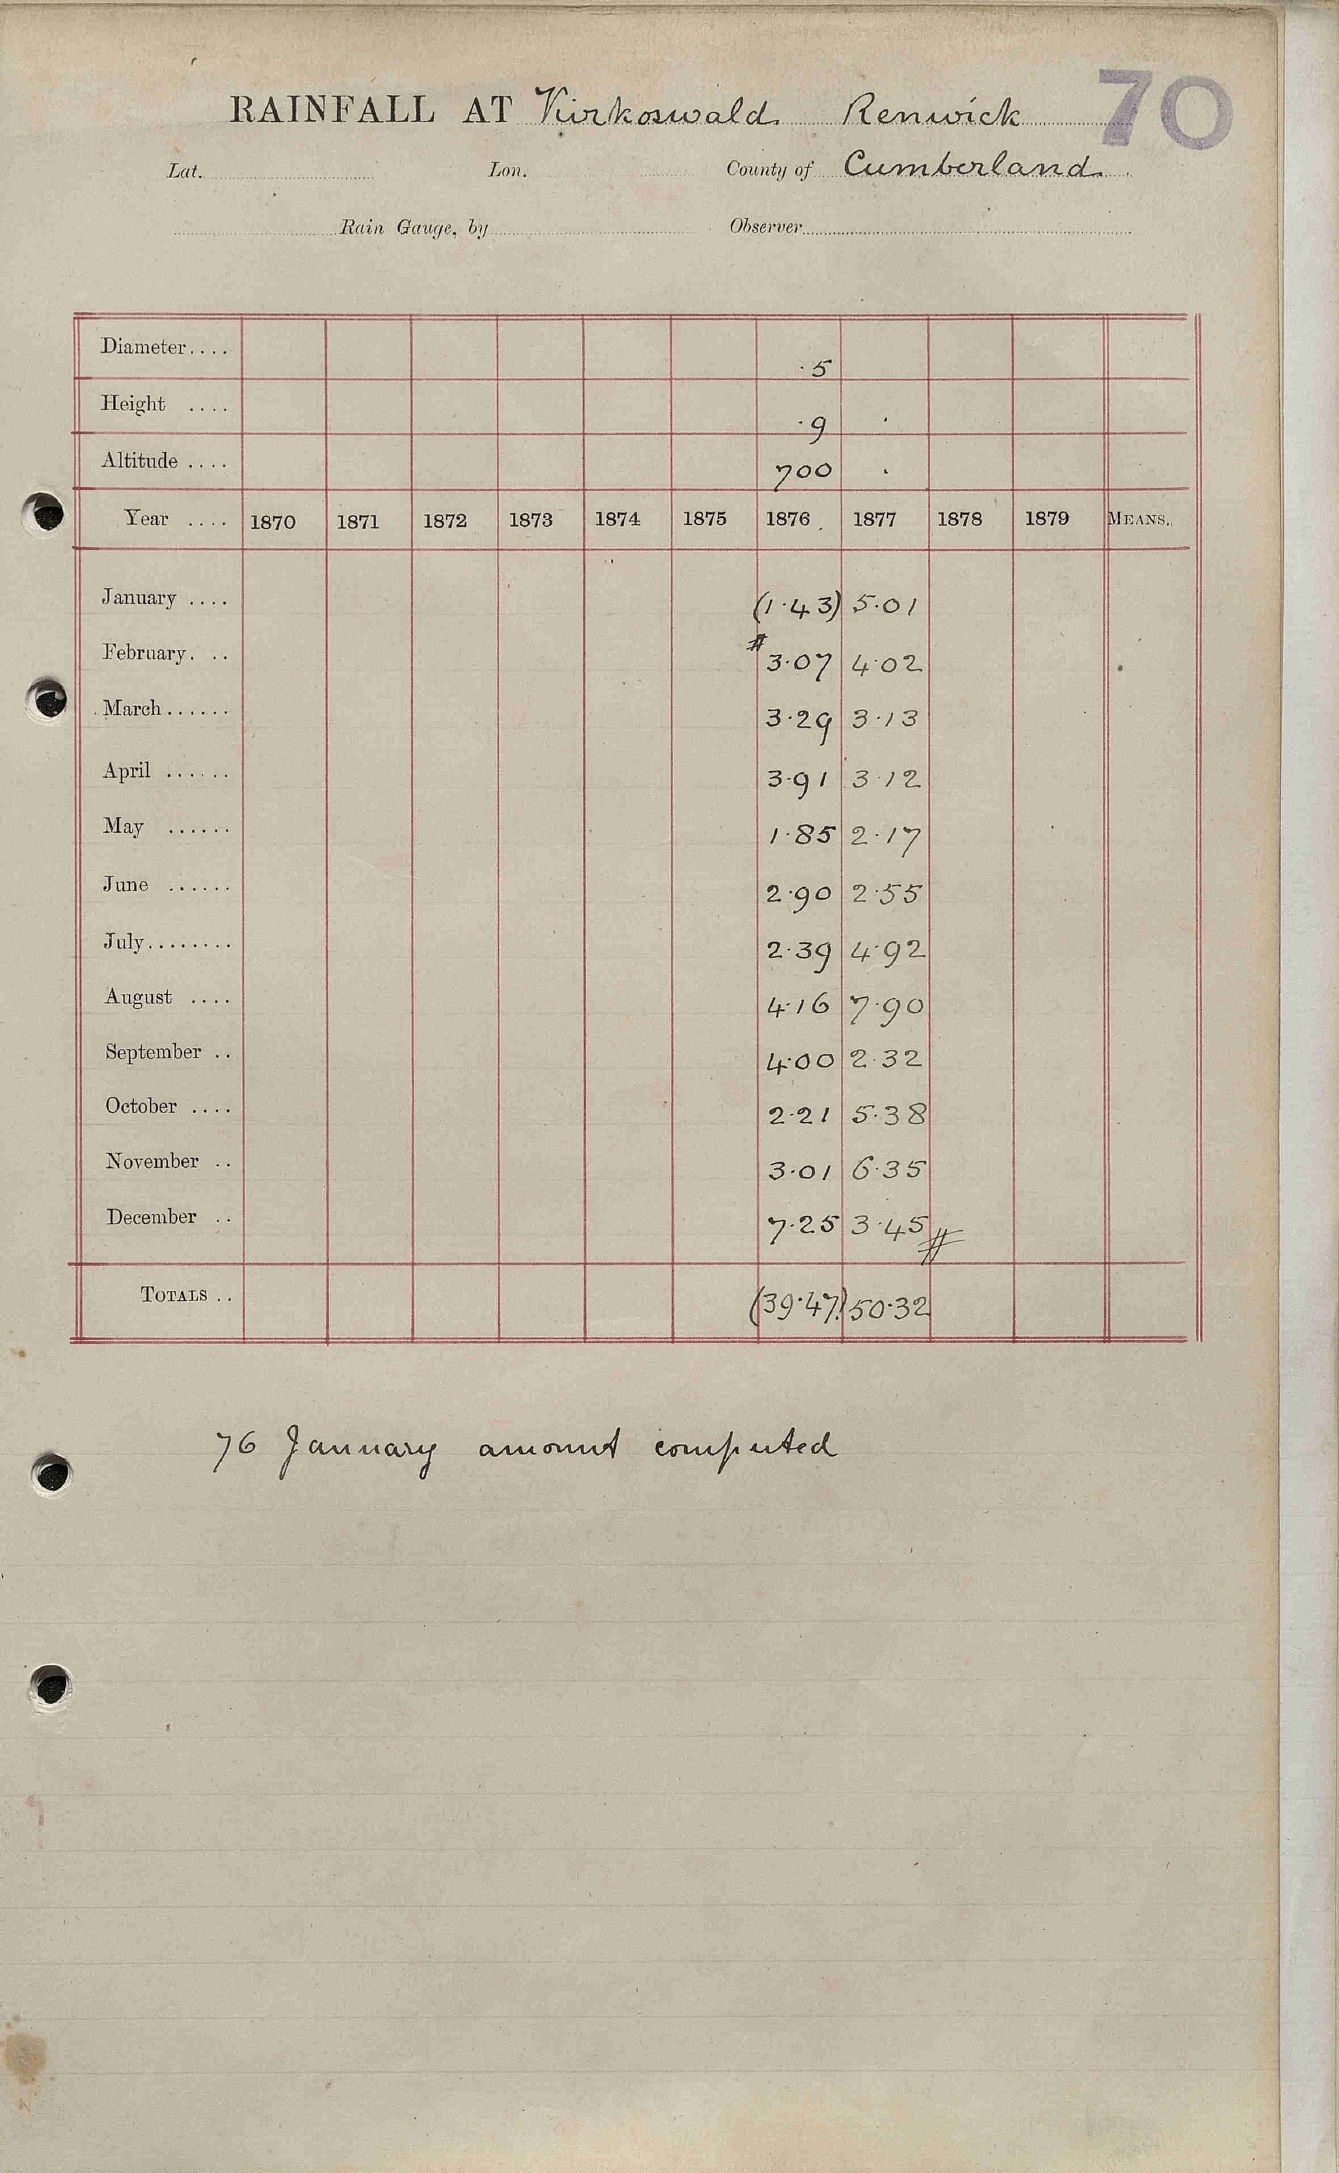 RAINFALL AT Kirkoswald Renwick 70
Lat. Lon. County of Cumberland
Rain Gauge, by Observer
Diameter.... ·5
Height .... ·9 .
Altitude .... 700 .
Year .... 1870 1871 1872 1873 1874 1875 1876 1877 1878 1879 MEANS.
January .... (1·43) 5·01
February. .. # 3·07 4·02
March...... 3·29 3·13
April ...... 3·91 3·12
May ...... 1·85 2·17
June ...... 2·90 2·55
July........ 2·39 4·92
August .... 4·16 7·90
September .. 4·00 2·32
October .... 2·21 5·38
November .. 3·01 6·35
December .. 7·25 3·45 #
TOTALS .. (39·47) 50·32
76 January amount computed